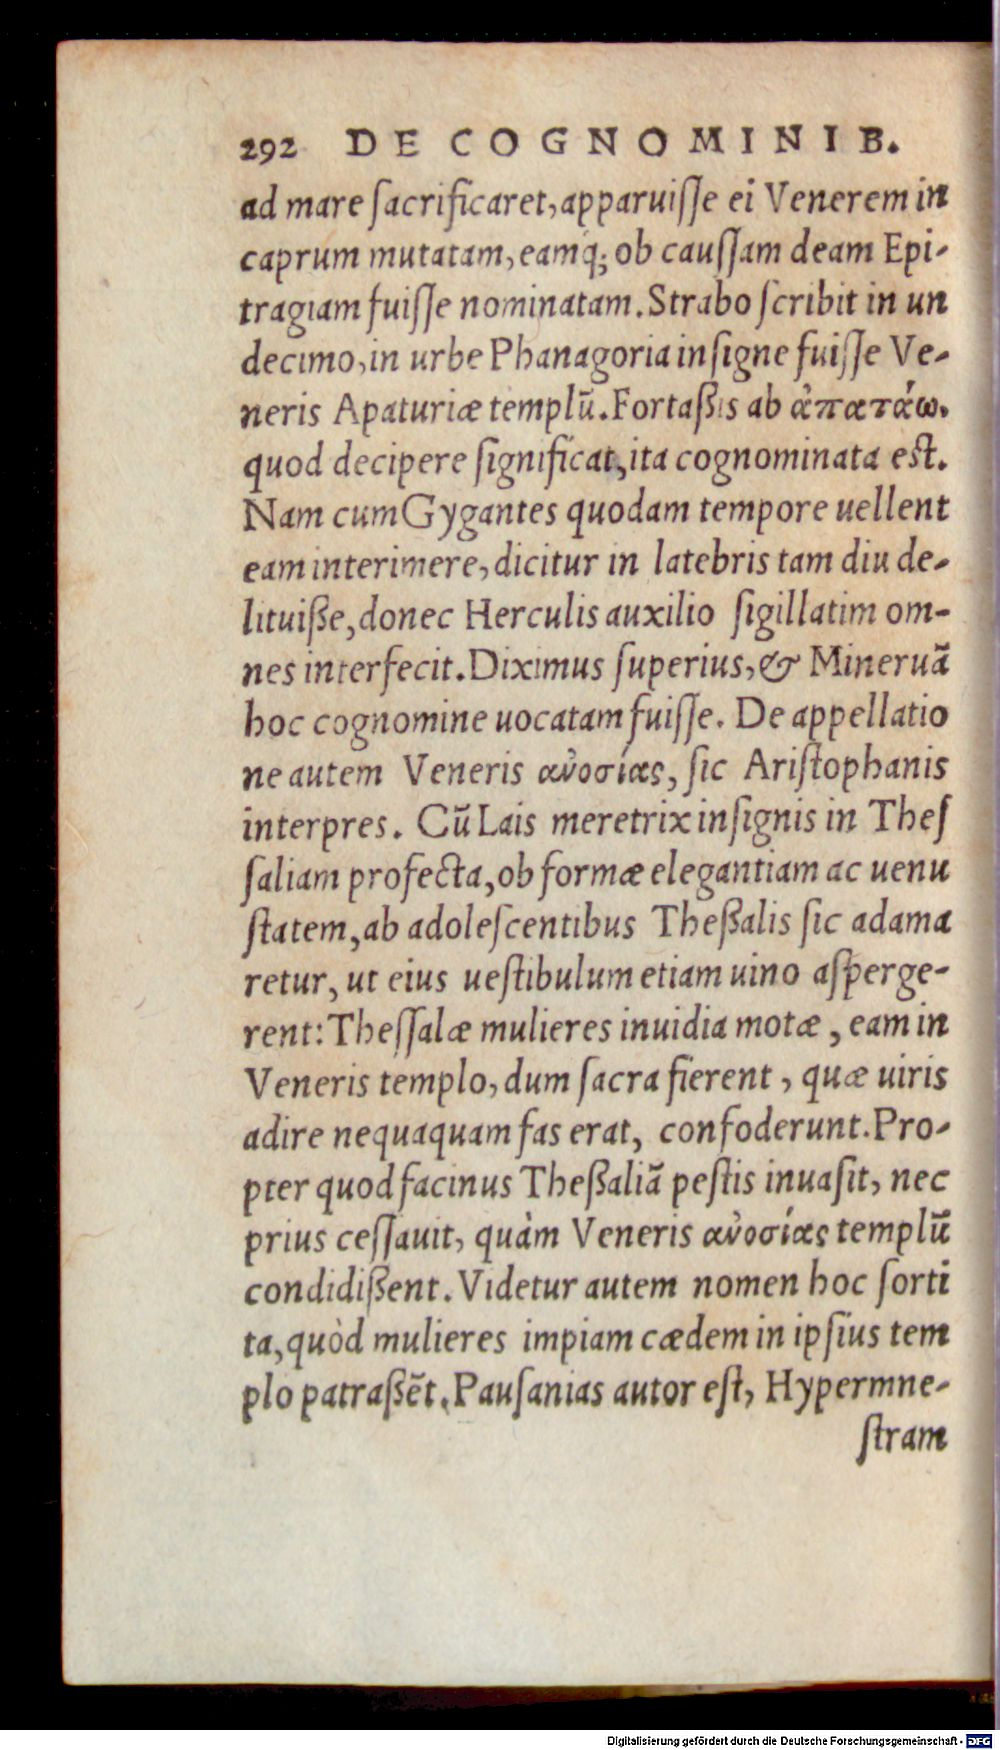 292 DE COGNOMINIB.
ad mare ſacrificaret, apparuiſſe ei Venerem in
caprum mutatam, eamq́; ob cauſſam deam Epi-
tragiam fuiſſe nominatam. Strabo ſcribit in un
decimo, in urbe Phanagoria inſigne fuiſſe Ve-
neris Apaturiæ templū. Fortaßis ab ἀπατάω.
quod decipere ſignificat, ita cognominata eſt.
Nam cum Gygantes quodam tempore uellent
eam interimere, dicitur in latebris tam diu de-
lituiße, donec Herculis auxilio ſigillatim om-
nes interfecit. Diximus ſuperius, & Mineruã
hoc cognomine uocatam fuiſſe. De appellatio
ne autem Veneris ανὀσίας, ſic Ariſtophanis
interpres. Cū Lais meretrix inſignis in Theſ
ſaliam profecta, ob formæ elegantiam ac uenu
ſtatem, ab adoleſcentibus Theßalis ſic adama
retur, ut eius ueſtibulum etiam uino aſperge-
rent: Theſſalæ mulieres inuidia motæ, eam in
Veneris templo, dum ſacra fierent, quæ uiris
adire nequaquam fas erat, confoderunt. Pro-
pter quod facinus Theßaliã peſtis inuaſit, nec
prius ceſſauit, quàm Veneris ανὀσίας templū
condidißent. Videtur autem nomen hoc ſorti
ta, quòd mulieres impiam cædem in ipſius tem
plo patraßēt. Pauſanias autor eſt, Hypermne-
ſtram
Digitalisierung gefördert durch die Deutsche Forschungsgemeinschaft - DFG